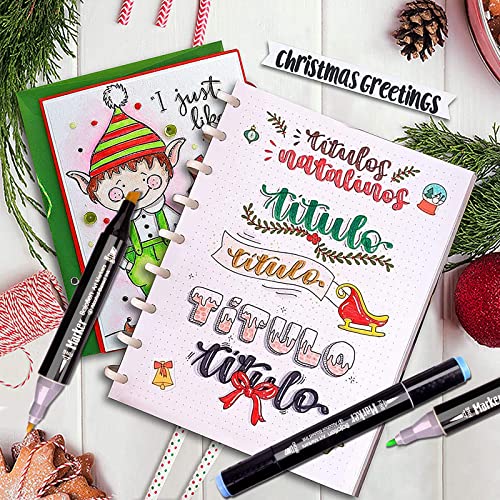 CHRISTMAS GREETINGS
I just
like
títulos
natalinos
título
título
TÍTULO
título
Marker
Marker
Marker